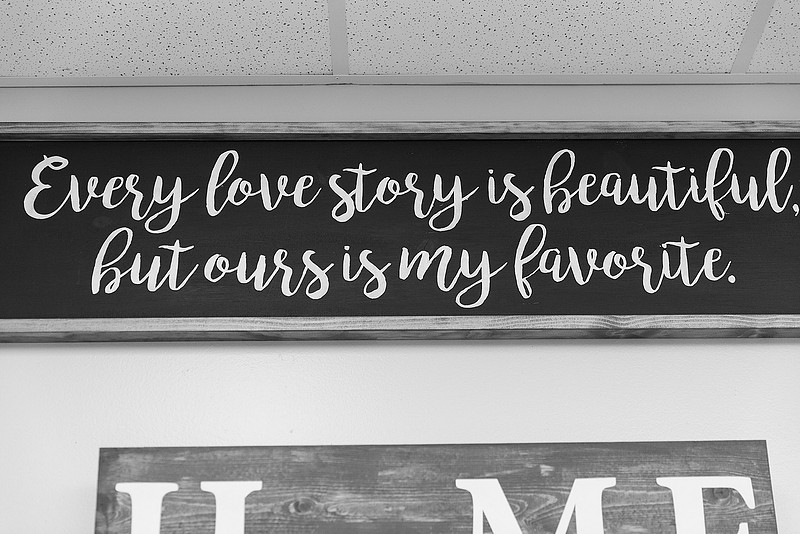 Every love story is beautiful,
but ours is my favorite.
H ME